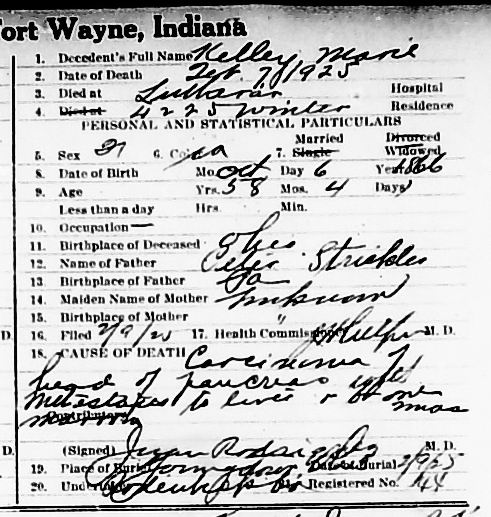 Fort Wayne, Indiana
1. Decedent's Full Name Kelley, Marie
2. Date of Death Feb. 7, 1925
3. Died at Lutheran Hospital
4. Died at 4225 Winter Residence
PERSONAL AND STATISTICAL PARTICULARS
Married Divorced
5. Sex 6. 7. Single Widowed
8. Date of Birth Mo. Oct Day 6 Year 1866
9. Age Yrs. 58 Mos. 4 Days 1
Less than a day Hrs. Min.
10. Occupation —
11. Birthplace of Deceased Ohio
12. Name of Father Peter Strickler
13. Birthplace of Father
14. Maiden Name of Mother Unknown
15. Birthplace of Mother "
D. 16. Filed 2/9/25 17. Health Commissioner M. D.
18. CAUSE OF DEATH Carcinoma of
head of pancreas with
metastases to liver & bone
marrow mos
Contributory
D. (Signed) Juan Rodriguez M. D.
19. Place of Burial Date of Burial 2/9/25
D. 20. Undertaker Registered No. 144